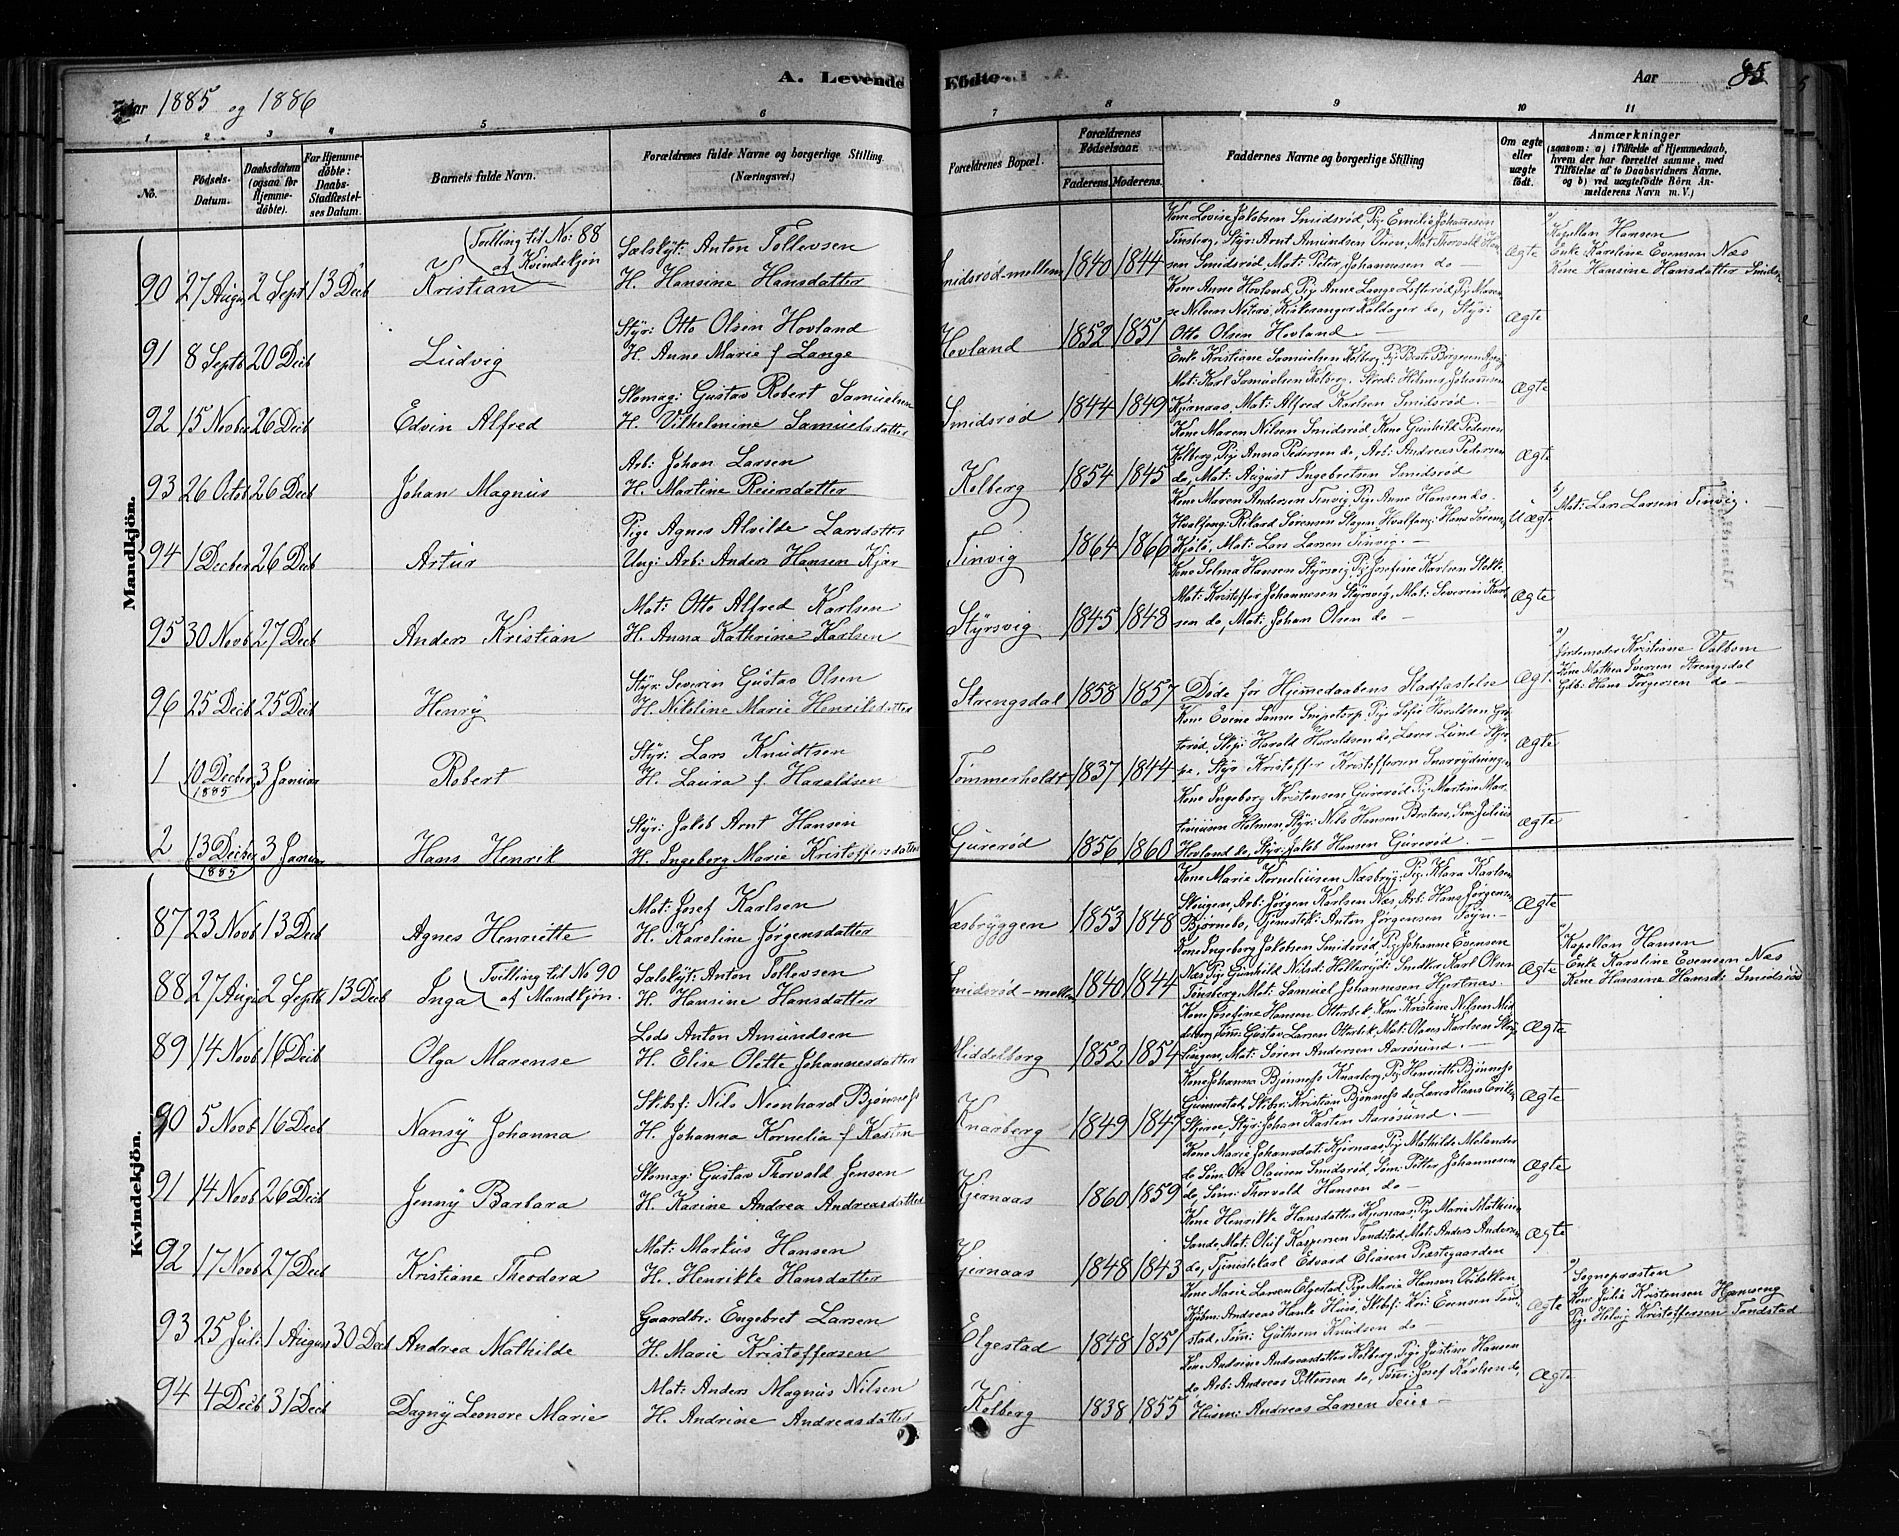 A. Levende Fødte.
Aar 1885 og 1886
Aar 85
1 2 3 4 5 6 7 8 9 10 11
No.
Födsels-Datum.
Daabsdatum (ogsaa for Hjemme-döbte).
For Hjemme-döbte: Daabs-Stadfæstel-ses Datum.
Barnets fulde Navn.
Forældrenes fulde Navne og borgerlige Stilling. (Næringsvei.)
Forældrenes Bopæl.
Forældrenes Födselsaar.
Faderens. Moderens.
Faddernes Navne og borgerlige Stilling
Om ægte eller uægte födt.
Anmærkninger (saasom: a) i Tilfælde af Hjemmedaab, hvem der har forrettet samme, med Tilföielse af to Daabsvidners Navne, og b) ved uægtefödte Börn An-melderens Navn m. V.)
Mandkjön.
90 27 Augu 2 Sept 13 Decb Kristian (Tvilling til No: 88 af Kvindekjön
Sælskyt: Anton Tollevsen
H. Hansine Hansdatter
Smidsröd-mellem 1840 1844
Kone Lovise Jakobsen Smidsröd, Pige Emilie Johannesen
Tönsberg, Styr: Arnt Amundsen Veien, Mat: Thorvald Han-
sen Smidsröd, Mat: Peter Johannesen do —
Ægte
a) Kapellan Hansen
Enke Karoline Evensen Næs
Kone Hansine Hansdatter Smids-
91 8 Septb 20 Decb Ludvig
Styr: Otto Olsen Hovland
H. Anne Marie f. Lange
Hovland 1852 1851
Kone Anne Hovland, Pige Anne Lange Lofteröd, Pige Maren
se Nilsen Nöterö, Kirkesanger Koldager do, Styr:
Otto Olsen Hovland. —
Ægte
92 15 Novbe 26 Decb Edvin Alfred
Skomag: Gustav Robert Samuelsen
H. Vilhelmine Samuelsdatter
Smidsröd 1844 1849
Enke Kristiane Samuelsen Kolberg, Pige Berte Börgesen
Mat: Karl Samuelsen Kolberg. Skred: Hilmer Johansen
Kjernaas, Mat: Alfred Karlsen Smidsröd. —
Ægte
93 26 Octob 26 Decb Johan Magnus
Arb: Johan Larsen
H. Martine Reiersdatter
Kolberg 1854 1845
Kone Maren Nilsen Smidsröd, Kone Gunhild Pedersen
Kolberg, Pige Anna Pedersen do, Arb: Andreas Pedersen
do, Mat: August Ingebretsen Smidsröd
Ægte
94 1 Decber 26 Decb Artur
Pige Agnes Alvilde Larsdatter
Ung: Arb: Anders Hansen Kjær
Tinvig 1864 1866
Kone Maren Andersen Tinvig, Pige Anne Hansen do.
Hvalfang: Rikard Sörensen Slagen Hvalfang: Hans Sörens
Kjölö, Mat: Lars Larsen Tinvig. —
Uægte
b) Mat: Lars Larsen Tinvig. —
95 30 Novb 27 Decb Anders Kristian
Mat: Otto Alfred Karlsen
H. Anna Kathrine Karlsen
Styrsvig 1845 1848
Kone Selma Hansen Styrsvig, Pige Josefine Karlsen Stokke
Mat: Kristoffer Johannesen Styrsvig, Mat: Severin Karl-
sen do, Mat: Johan Olsen do —
Ægte
96 25 Decb 25 Decb Henry
Styr: Severin Gustav Olsen
H. Nikoline Marie Henriksdatter
Strengsdal 1858 1857
Döde för Hjemmedaabens Stadfæstelse
Ægt.
a) Jordemoder Kristiane Valbom
Kone Mathea Iversen Strengsdal
Gdb: Hans Torgersen do —
1 10 Decber 1885 3 Januar Robert
Styr: Lars Knudtsen
H. Laura f. Haraldsen
Tömmerholdt 1837 1844
Kone Evene Sanne Snipetorp, Pige Sofie Haraldsen Gu-
teröd, Skip: Harald Haraldsen do, Lærer Lund Skjer-
ve, Styr Kristoffer Kristoffersen
Ægte
2 13 Decber 1885 3 Januar Hans Henrik
Styr: Jakob Arnt Hansen
H. Ingeborg Marie Kristoffersdatter
Gureröd 1856 1860
Kone Ingeborg Kristensen Gureröd Pige Martine Mar-
tinusen Holmen, Styr: Nils Hansen Brataas, Söm: Julius
Hovland do, Styr: Jakob Hansen Gureröd. —
Ægte
Kvindekjön.
87 23 Novb 13 Decb Agnes Henriette
Mat: Josef Karlsen
H. Karoline Jörgensdatter
Næsbryggen 1853 1848
Kone Marie Korneliusen Næsbryg: Pige Klara Karlsen
Skougen, Arb: Jörgen Karlsen Næs, Arb: Hans Jörgensen
Björnebo, Tjenestek: Anton Jörgensen Töyn —
Ægte
88 27 Augu 2 Septb 13 Decb Inga (Tvilling til No 90 af Mandkjön.
Sælskyt: Anton Tollevsen
H. Hansine Hansdatter
Smidsröd-mellem 1840 1844
Kone Ingeborg Jakobsen Smidsröd Pige Johanne Evensen
Næs, Pige Gunhild Nilsd: Holteryd: Snedker Karl Olsen
Tönsberg, Mat: Samuel Johannesen Hjertnæs.
Ægte
a) Kapellan Hansen
Enke Karoline Evensen Næs
Kone Hansine Hansd: Smidsröd
89 14 Novb 16 Decb Olga Marense
Lods Anton Amundsen
H. Elise Olette Johannesdatter
Middelborg 1852 1854
Kone Josefine Hansen Otterbek, Kone Kristine Nilsen Mid-
delborg, Töm: Gustav Larsen Otterbek, Mat: Olaus Karlsen
Mat: Sören Andersen Aarösund. —
Ægte
90 5 Novb 16 Decb Nansy Johanna
Skibsf: Nils Neonhard Björness
H. Johanna Kornelia f. Kasten
Knarberg 1849 1847
Kone Johanna Björness Knarberg, Pige Henriette Björness
Gunnestad, Skibsr: Kristian Björness do, Lærer Hans Erik-
Skjerve, Styr: Johan Karsten Aarösund. —
Ægte
91 14 Novb 26 Decb Jenny Barbara
Skomag: Gustav Thorvald Jensen
H. Karine Andrea Andreasdatter
Kjernaas 1860 1859
Kone Marie Johansdat: Kjernaas, Pige Mathilde Melander
do, Söm: Otto Olausen Smidsröd, Söm: Petter Johannesen
do, Söm: Thorvald Hansen do —
Ægte
92 17 Novb 27 Decb Kristiane Theodora
Mat: Markus Hansen
H. Henrikke Hansdatter
Kjernaas 1848 1843
Kone Henrikke Hansdatter Kjernaas, Pige Marie Mathisen
Sande, Mat: Oluf Kaspersen Tandstad, Mat: Anders Andersen
do, Tjenestekarl Edvard Eliasen Præstegaarden
Ægte
93 25 Juli 1 August 30 Decb Andrea Mathilde
Gaardbr: Engebret Larsen
H. Marie Kristoffersen
Elgestad 1848 1851
Kone Marie Larsen Elgestad, Pige Marie Hansen
Kjöbm: Andreas Hanke Huus, Skibsf: Kri: Evensen Tand-
stad, Töm: Guthorm Knudsen do —
Ægte
a) Sognepræsten
Kone Julie Kristensen Hanseng
Pige Helvig Kristoffersen Tandstad
94 4 Decb 31 Decb Dagny Leonore Marie
Mat: Anders Magnus Nilsen
H. Andrine Andreasdatter
Kolberg 1838 1855
Kone Andrine Andreasdatter Kolberg, Pige Justine Hansen
do, Arb: Andreas Pettersen do, Töm: Josef Karlsen do,
Husm: Andreas Larsen Teie. —
Ægte